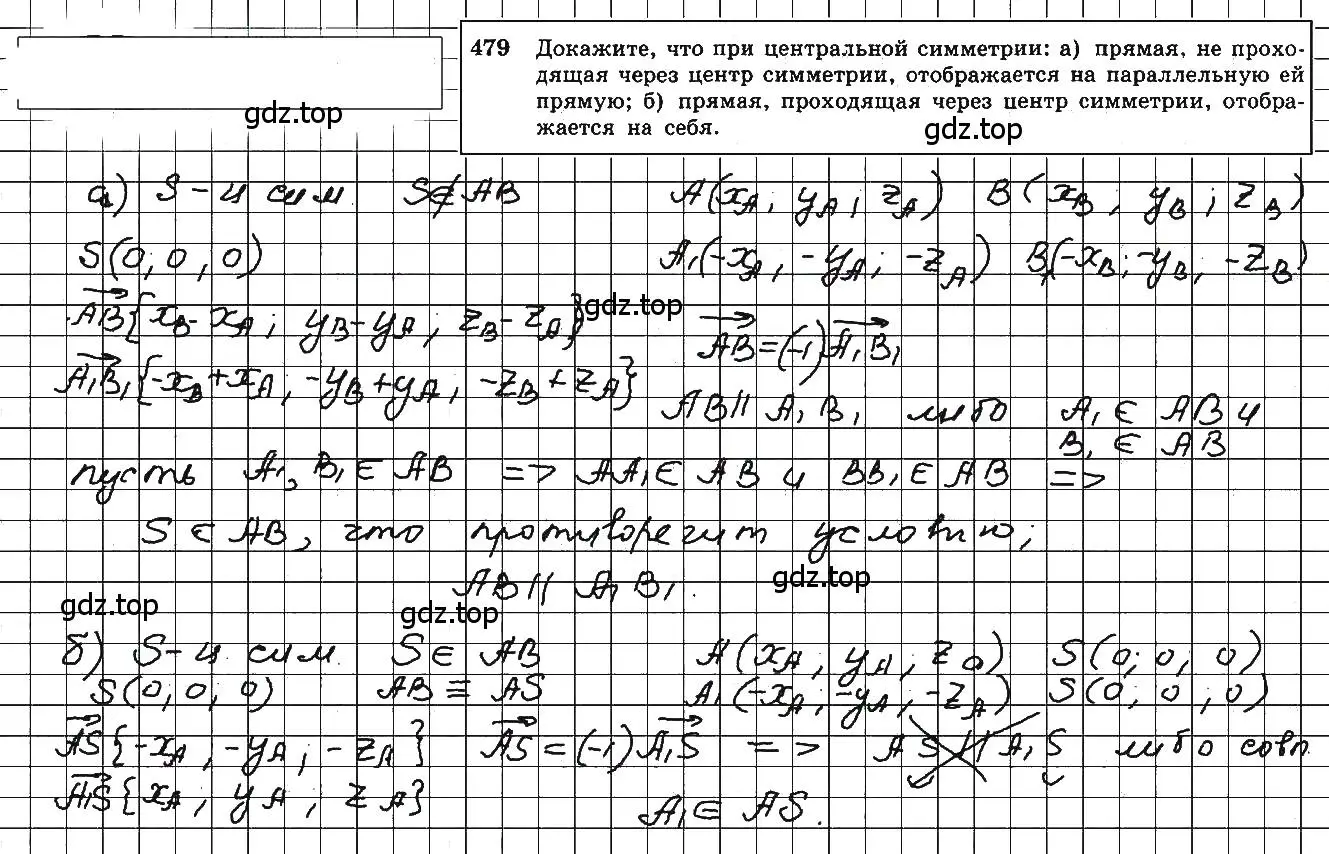 479 Докажите, что при центральной симметрии: а) прямая, не прохо-
дящая через центр симметрии, отображается на параллельную ей
прямую; б) прямая, проходящая через центр симметрии, отобра-
жается на себя.
gdz.top
gdz.top
а) S – ц сим S∉AB A(x_A; y_A; z_A) B(x_B; y_B; z_B)
S(0; 0; 0) A₁(-x_A; -y_A; -z_A) B₁(-x_B; -y_B; -z_B)
gdz.top
AB{x_B - x_A; y_B - y_A; z_B - z_A} AB = (-1)A₁B₁
A₁B₁{-x_B + x_A; -y_B + y_A; -z_B + z_A}
AB || A₁B₁ либо A₁ ∈ AB и
B₁ ∈ AB
пусть A₁, B₁ ∈ AB => AA₁ ∈ AB и BB₁ ∈ AB =>
S ∈ AB, что противоречит условию;
AB || A₁B₁.
gdz.top
gdz.top
gdz.top
б) S – ц сим. S ∈ AB A(x_A; y_A; z_A) S(0; 0; 0)
S(0; 0; 0) AB ≡ AS A₁(-x_A; -y_A; -z_A) S(0; 0; 0)
AS{-x_A; -y_A; -z_A} AS = (-1)A₁S => AS || A₁S либо совп.
A₁S{x_A; y_A; z_A} A₁ ∈ AS.